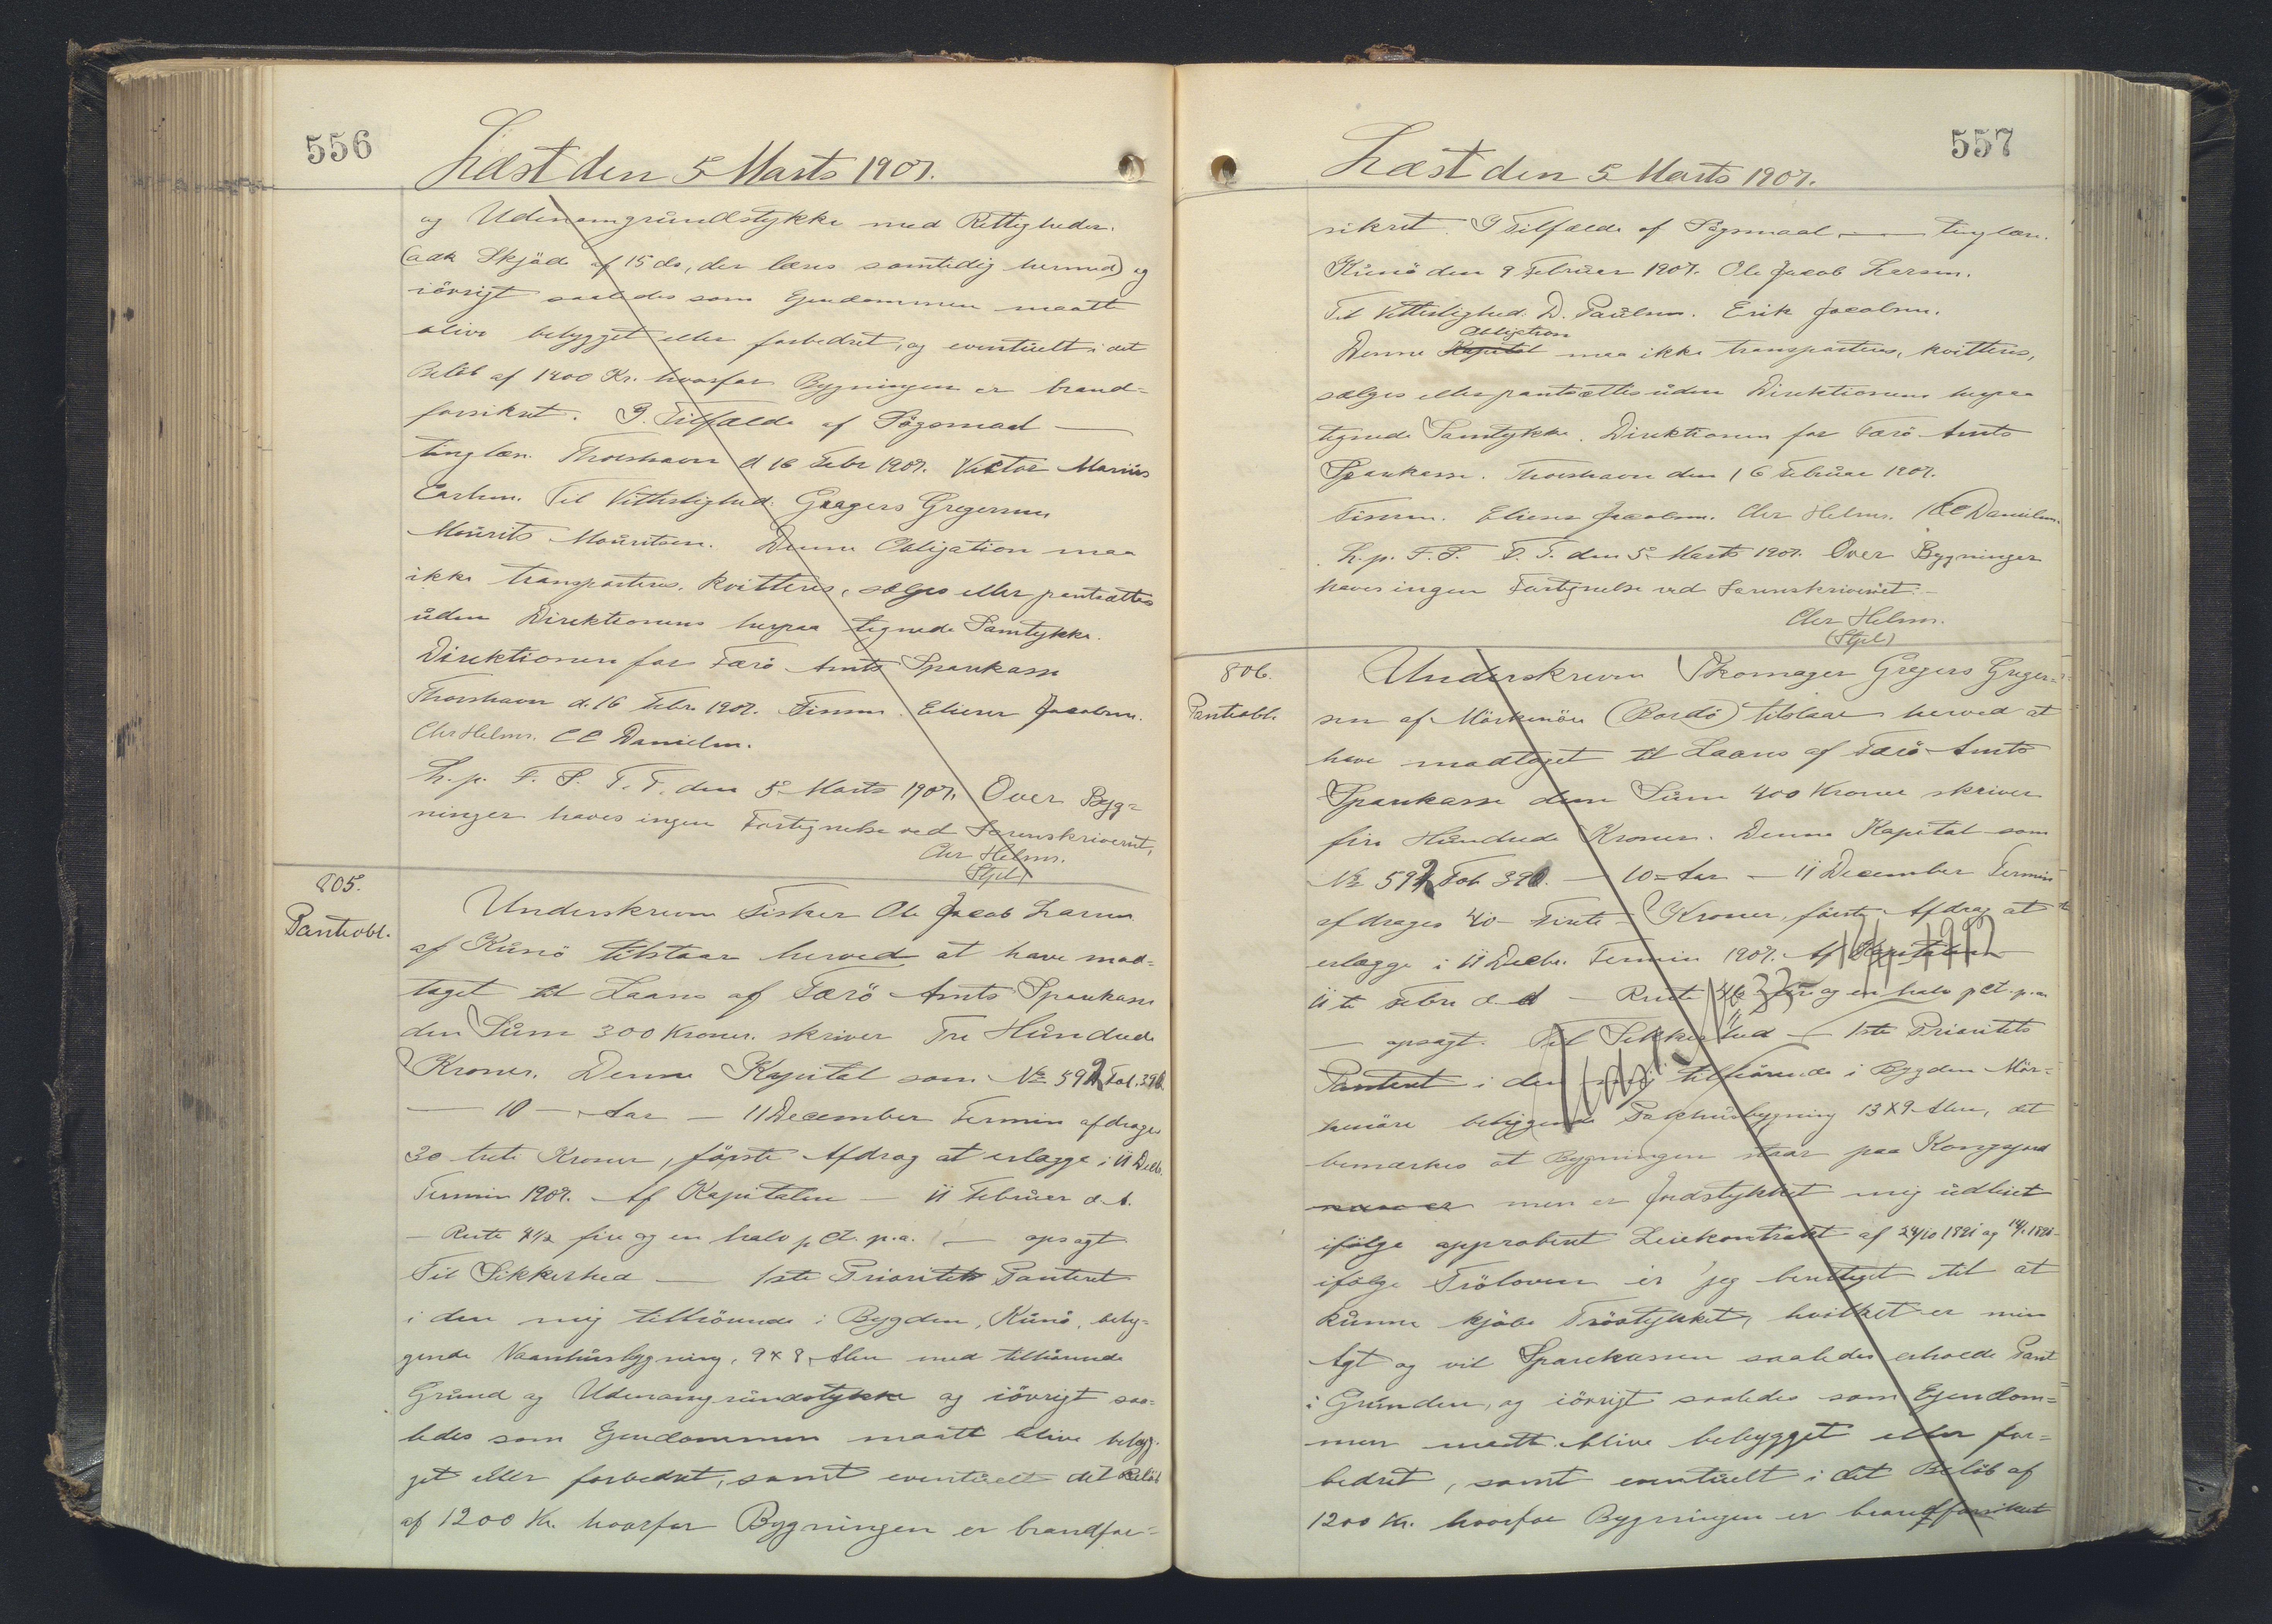 556
Læst den 5 Marts 1907.
og Udenomgrundstykke med Rettigheder.
(adk Skjøde af 15 ds, der læses samtidig hermed) og
iövrigt saaledes som Ejendommen maatte
blive bebygget eller forbedret, og eventuelt i det
Belöb af 1400 Kr. hvorfor Bygningen er brand-
forsikret. I Tilfælde af Sögsmaal —
tinglæs. Thorshavn d 16 Febr 1907. Victor Marius
Carlsen. Til Vitterlighed: Gregers Gregersen
Mourits Mouritsen. Denne Obligation maa
ikke transporteres, kvitteres, sælges eller pantsættes
uden Direktionens herpaa tegnede Samtykke.
Direktionen for Færö Amts Sparekasse
Thorshavn d. 16 Febr. 1907. Finsen. Elieser Jacobsen.
Chr Helms. CC Danielsen.
L. p. F. S. T. T. den 5 Marts 1907. Over Byg=
ninger haves ingen Fortegnelse ved Sorenskriveriet,
Chr Helms.
(Stpl)
805.
Pantobl.
Underskreven Fisker Ole Jacob Larsen
af Kunö tilstaar herved at have mod=
taget til Laans af Færö Amts Sparekasse
den Sum 300 Kroner. skriver Tre Hundrede
Kroner. Denne Kapital som № 592 Fol. 390
— 10 — Aar — 11 December Termin afdrages
30 treti Kroner, förste Afdrag at erlægge i 11 Decb.
Termin 1907. Af Kapitalen — 11 Februar d. A.
— Rente 4½ fire og en halv pCt. p.a. — opsagt
Til Sikkerhed — 1ste Prioritets Panteret
i den mig tilhörende i Bygden, Kunö, beliggende
Vaanhusbygning, 9 x 8 Alen med tilhörende
Grund og Udenomgrundstykke og iövrigt saa=
ledes som Ejendommen maatte blive bebyg=
get eller forbedret, samt eventuelt det Belöb
af 1200 Kr. hvorfor Bygningen er brandfor=
557
Læst den 5 Marts 1907.
sikret. I Tilfælde af Sögsmaal — tinglæs.
Kunö den 9 Februar 1907. Ole Jacob Larsen.
Til Vitterlighed: D. Paulsen. Erik Jacobsen.
Obligation
Denne Kapital maa ikke transporteres, kvitteres,
sælges eller pantsættes uden Direktionens herpaa
tegnede Samtykke. Direktionen for Færö Amts
Sparekasse. Thorshavn den 16 Februar 1907.
Finsen. Elieser Jacobsen. Chr Helms. CC Danielsen.
L. p. F. S. T. T. den 5 Marts 1907. Over Bygninger
haves ingen Fortegnelse ved Sorenskriveriet. —
Chr Helms.
(Stpl)
806.
Pantobl.
Underskreven Skomager Gregers Greger=
sen af Mörkenöre (Bordö) tilstaar herved at
have modtaget til Laans af Færö Amts
Sparekasse den Sum 400 Kroner skriver
fire Hundrede Kroner. Denne Kapital som
№ 592 Fol 390. — 10 = Aar — 11 December Termin
afdrages 40 — Kroner, förste Afdrag at
erlægge i 11 Decbr. Termin 1907. Af Kapitalen
11te Febr d. A — Rente 4½ fire og en halv pCt. p.a
— opsagt. Til Sikkerhed — 1ste Prioritets
Panteret i den mig tilhörende i Bygden Mör=
kenöre beliggende Pakhusbygning 13 x 9 Alen, det
bemærkes at Bygningen staar paa Kongsjord
men er Jordstykket mig udleiet
ifölge approberet Leiekontrakt af 24/10 1891 og
ifölge Tröloven er jeg berettiget til at
kunne kjöbe Tröstykket, hvilket er min
Agt og vil Sparekassen saaledes erholde Pant
i Grunden, og iövrigt saaledes som Ejendom=
men maatte blive bebygget eller for=
bedret, samt eventuelt i det Belöb af
1200 Kr. hvorfor Bygningen er brandforsikret